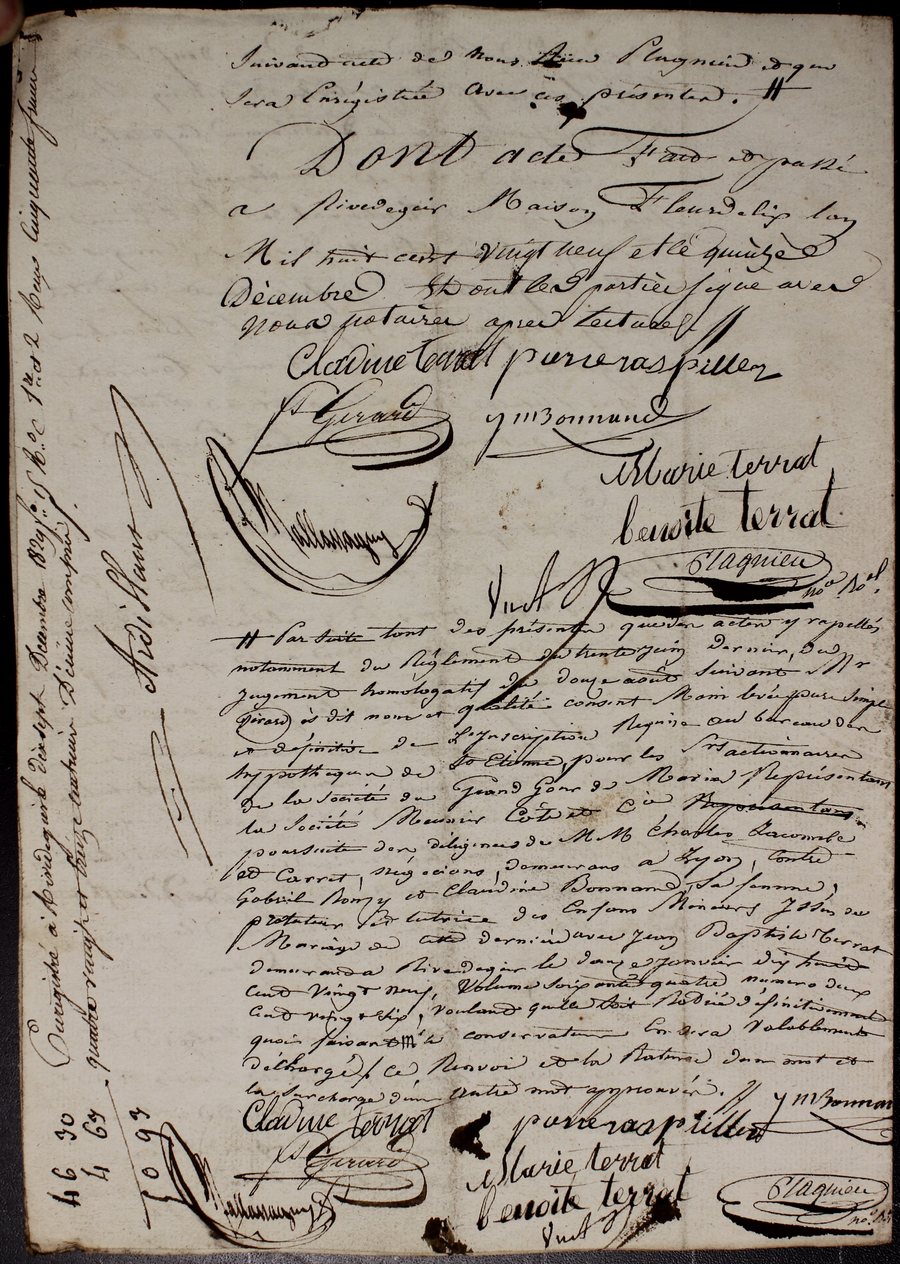 Suivant acte de nous Plagnieu et que
Sera Enrégistrée avec ces présentes. #
Dont acte Fait et passé
a Rivedegier Maison Fleurdelix lan
Mil huit cent vingt neuf et le quinze
Décembre Et ont les parties signé avec
Nous notaires apres lecture
Cladine terrat pierre raspiller
Girard ymBonnand
Marie terrat
benoite terrat
Mallassagny
Plagnieu
no.re Ro.al
# Par suite tant des présentes que des actes y rappellés
notamment du Réglement du trente juin dernier, du
jugement homologatif du douze août suivant Mr
Girard ès dit nom et qualité consent Main levée pure simple
et définitive de L'inscription Requise au bureau des
hypotheques de St Etienne, pour les Srs actionnaires
de la Société du Grand Gour de Marin Représentans
la Société Meunier Côte et Cie Representans
poursuite des diligences de M.M. Charles Lacombe
et Carret, négocians, demeurans a Lyon, Contre
Gabriel Rony et Claudine Bonnand, Sa femme,
protuteur et tutrice des Enfans Mineurs Issus du
Mariage de cette derniere avec Jean Baptiste Terrat
demeurans a Rivedegier le douze janvier dix huit
cent vingt neuf, Volume Soixante quatre numero deux
cent vingt dix, voulant qu'elle soit Radiée définitivement
quoi faisant Mr le conservateur En sera Valablement
déchargé / ce Renvoi et la Rature d'un mot et
la Surcharge d'un autre mot approuvés. #
ymBonnand
Cladine terrat pierre raspiller
Girard
Marie terrat
benoite terrat
Mallassagny
Plagnieu
no.re
Enregistré à Rivedegier le dix sept Décembre 1829 fo. 15 Ro. C. 1re et 2 Reçu Cinquante francs
quatre vingt treize centimes Décime compris.
46 30
4 63
50 93